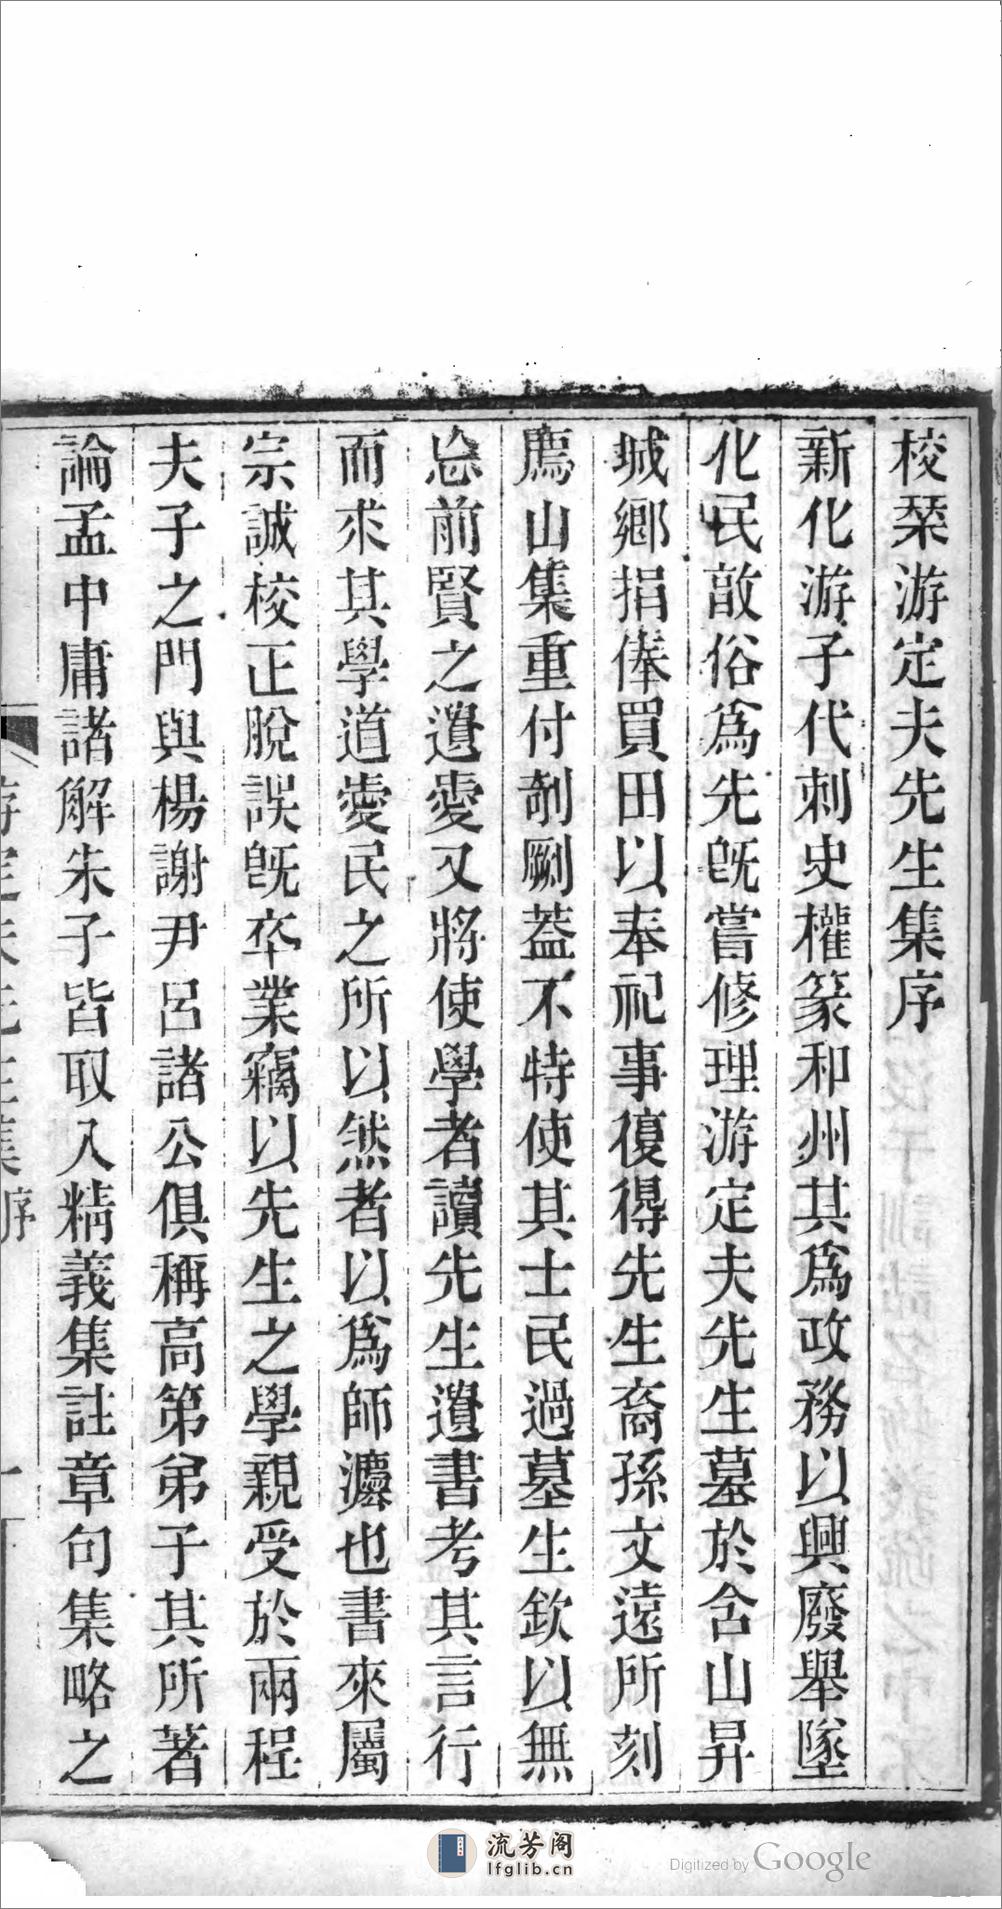 校栞游定夫先生集序
新化游子代刺史權篆和州其爲政務以興廢舉墜
化民敨俗爲先旣嘗修理游定夫先生墓於含山昇
城鄉捐俸買田以奉祀事復得先生裔孫文遠所刻
廌山集重付剞劂葢不特使其士民過墓生欽以無
忘前賢之遺愛又將使學者讀先生遺書考其言行
而求其學道愛民之所以然者以爲師灋也書來屬
宗誠校正脫誤旣卒業竊以先生之學親受於兩程
夫子之門與楊謝尹呂諸公俱稱高第弟子其所著
論孟中庸諸解朱子皆取入精義集註章句集略之
游定夫先生集 序 一
流芳阁
lfglib.cn
Digitized by Google